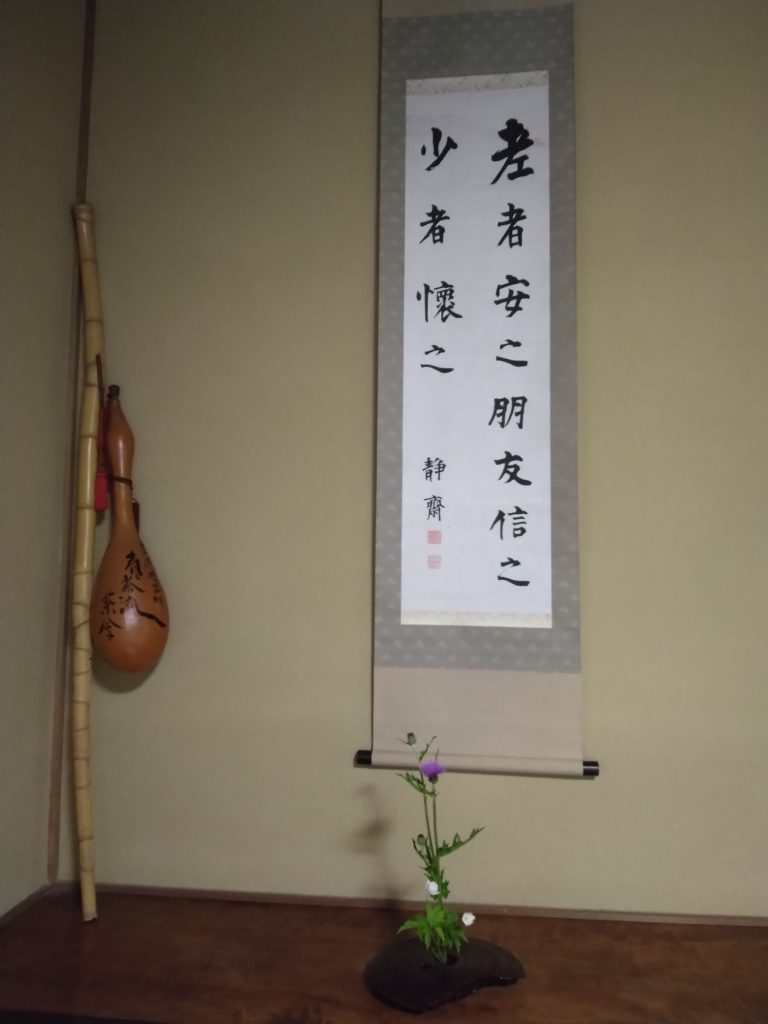 老者安之朋友信之
少者懷之
静齋